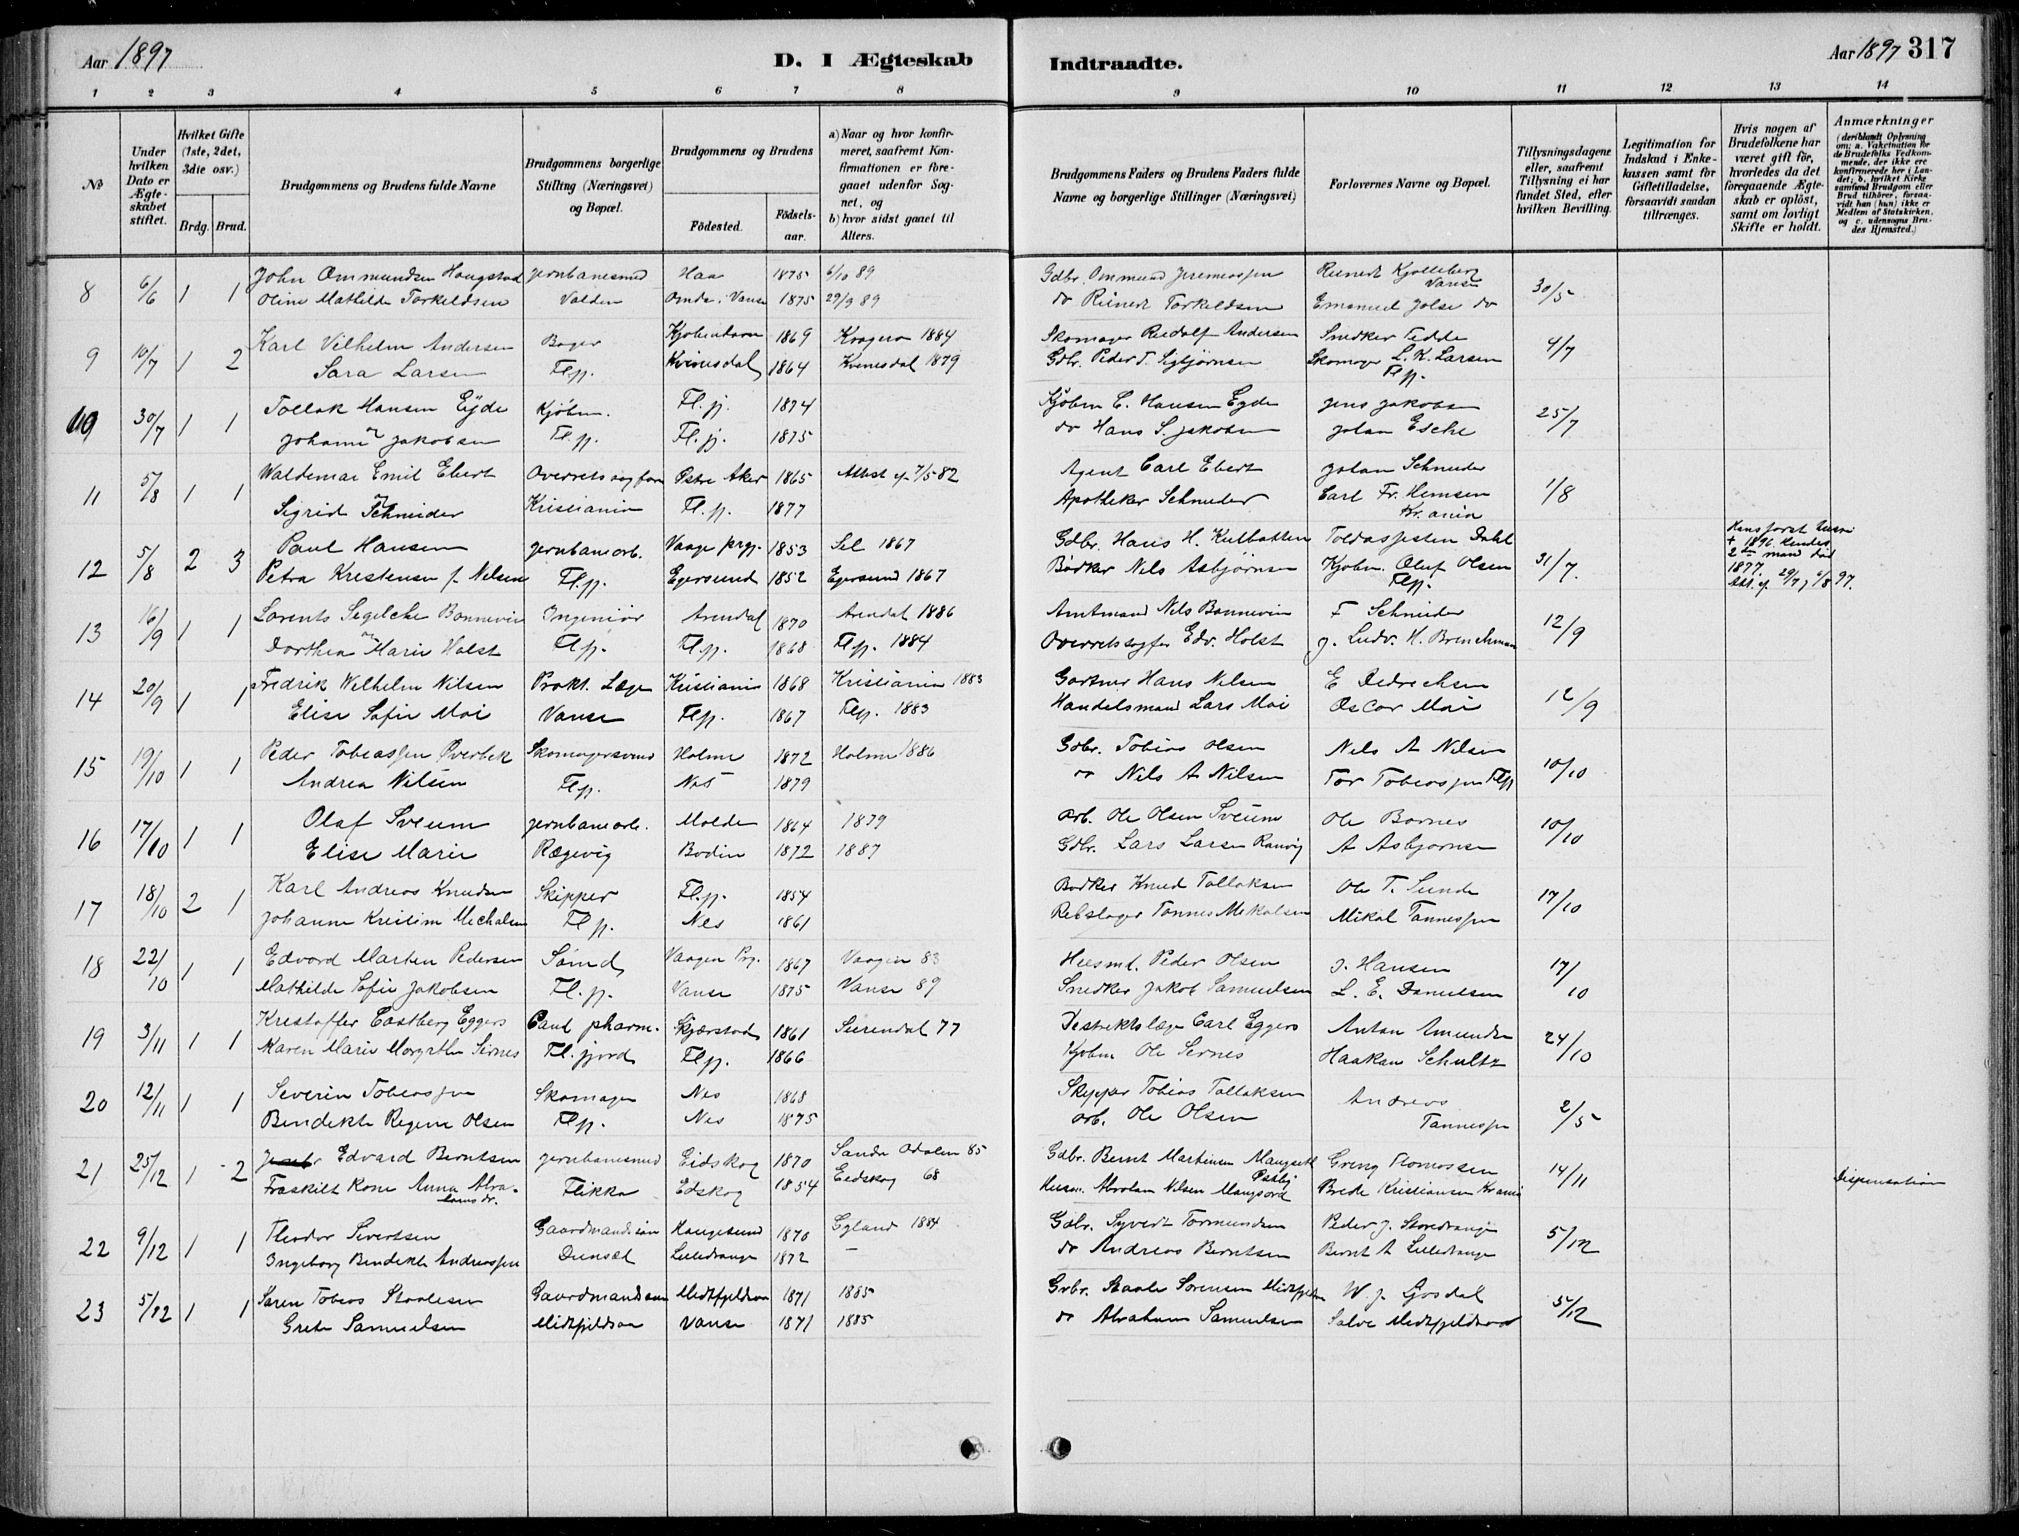 Aar 1897
D. I Ægteskab
Indtraadte.
Aar 1897 317
1 2 3 4 5 6 7 8 9 10 11 12 13 14
No
Under hvilken Dato er Ægteskabet stiftet.
Hvilket Gifte (1ste, 2det, 3die osv.)
Brdg. Brud.
Brudgommens og Brudens fulde Navne
Brudgommens borgerlige Stilling (Næringsvei) og Bopæl.
Brudgommens og Brudens
Födested.
Födselsaar.
a) Naar og hvor konfirmeret, saafremt Konfirmationen er foregaaet udenfor Sognet, og
b) hvor sidst gaaet til Alters.
Brudgommens Faders og Brudens Faders fulde Navne og borgerlige Stillinger (Næringsvei)
Forlovernes Navne og Bopæl.
Tillysningsdagene eller, saafremt Tillysning ei har fundet Sted, efter hvilken Bevilling.
Legitimation for Indskud i Enkekassen samt for Giftetilladelse, forsaavidt saadan tiltrænges.
Hvis nogen af Brudefolkene har været gift för, hvorledes da det foregaaende Ægteskab er oplöst, samt om lovligt Skifte er holdt.
Anmærkninger
(deriblandt Oplysning om: a. Vakcination for de Brudefolks Vedkommende, der ikke ere konfirmerede her i Landet; b. hvilket Kirkesamfund Brudgom eller Brud tilhörer, forsaavidt han (hun) ikke er Medlem af Statskirken, og c. udensogns Brudes Hjemsted.)
8 6/6 1 1 John Ommundsen Haugstad jernbanesmed Haa 1875 6/10 89 Gdbr. Ommund Jeremiassen Reinert Kjølleberg Vanse 30/5
Oline Mathilde Torkeldsen Valden Omde. Vanse 1875 29/9 89 do Reinert Torkeldsen Emanuel Jølse do
9 10/7 1 2 Karl Vilhelm Andersen Bager Kjøbenhavn 1869 Kragerø 1884 Skomager Rudolf Andersen Snedker Tedde 4/7
Sara Larsen Flp. Kvinesdal 1864 Kvinesdal 1879 Gdbr. Peder T. Sigbjørnsen Skomager L. K. Larsen Flp.
10 30/7 1 1 Tollak Hansen Eyde Kjøbm. Fl.fj. 1874 Kjøbm C. Hansen Eyde Jens Jakobsen 25/7
Johanne Jakobsen Fl.p. Fl.fj. 1875 do Hans S. Jakobsen Johan Esche
11 5/8 1 1 Waldemar Emil Ebert Overretssagfører Østre Aker 1865 Attest af 7/5 82 Agent Carl Ebert Johan Schneider 1/8
Sigrid Schneider Kristiania Fl.p. 1877 Apotheker Schneider Carl Fr. Hemsen Kr.ania
12 5/8 2 3 Paul Hansen jernbanearb. Vaage prgj. 1853 Sel 1867 Gdbr. Hans H. Kulbotten Toldassistent Dahl 31/7.
Petra Kristensen f. Nilsen Fl.p. Egersund 1852 Egersund 1867 Bødker Nils Asbjørnsen Kjøbm. Oluf Olsen Flp.
Hans forst hustru + 1896 hendes 2den mand død 1877. Att. af 29/7, 6/8 97.
13 16/9 1 1 Lorents Segelcke Bonnevie Ingeniør Arendal 1870 Arendal 1886 Amtmand Nils Bonnevie F Schneider 12/9
Dorthea Marie Holst Fl.p. Fl.p. 1868 Flp. 1884 Overretssagfør Edv. Holst J. Ludv. H. Brinchman
14 20/9 1 1 Fredrik Wilhelm Nilsen Prakt. Læge Kristiania 1868 Kristiania 1883 Gartner Hans Nilsen E Didrechsen 12/9
Elise Sofie Moi Vanse Flp. 1867 Flp. 1883 Handelsmand Lars Moi Oscar Moi
15 19/10 1 1 Peder Tobiassen Øverbek Skomagersvend Holme 1872 Holme 1886 Gdbr. Tobias Olsen Nils A Nilsen 10/10
Andrea Nilsen Flp. Nes 1879 do Nils A Nilsen Tor Tobiassen Flp
16 17/10 1 1 Olaf Sveum jernbanearb. Molde 1864 1879 Arb. Ole Olsen Sveum Ole Bornes 10/10
Elise Marie Rægevig Bodin 1872 1887 Gdbr. Lars Larsen Ranvig A Asbjørnsen
17 18/10 2 1 Karl Andreas Knudsen Skipper Fl.p. 1854 Bødker Knud Tollaksen Ole T. Sunde 17/10
Johanne Kristine Michalsen Flp. Nes 1861 Rebslager Tønnes Mikalsen Mikal Tønnessen
18 22/10 1 1 Edvard Martin Pedersen Smed Vaagen Prg. 1867 Vaagen 83 Husmd. Peder Olsen J. Hansen 17/10
Mathilde Sofie Jakobsen Fl.p. Vanse 1875 Vanse 89 Snedker Jakob Samuelsen L. E. Danielsen
19 3/11 1 1 Kristoffer Castberg Eggers Cand pharm. Skjærstad 1861 Surendal 77 Distriktslæge Carl Eggers Anton Amundsen 24/10
Karen Marie Margrethe Sirnes Fl.fjord Flp. 1866 Kjøbm Ole Sirnes Haakon Schultz
20 12/11 1 1 Severin Tobiassen Skomager Nes 1868 Skipper Tobias Tollaksen Andreas 2/5
Bendikte Regine Olsen Flp. Nes 1875 Arb. Ole Olsen Tønnessen
21 25/12 1 2 Edvard Berntsen jernbanesmed Eidskog 1870 Søndre Odalen 85 Gdbr. Bernt Martinsen Mangseth Georg Thomassen 14/11 Dispensation
Fraskilt Kone Anna Abrahamsdr. Flikka Eidskog 1854 Eidskog 68 Husm. Abraham Nilsen Brede Kristiansen Krania
22 9/12 1 1 Theodor Sivertsen Gaardmandssøn Haugesund 1870 Egland 1884 Gdbr. Syvert Tormundsen Peder J. Storedrange 5/12
Ingeborg Bendikte Andreassen Drensæl Lilledrange 1872 — do Andreas Berntsen Bernt A Lilledrange
23 5/12 1 1 Søren Tobias Staalesen Gaardmandssøn Midtfjeldsaa 1871 1885 Gdbr. Staale Sørensen W. J. Gosdal 5/12
Grete Samuelsen Midtfjeldsaa Vanse 1871 1885 do Abraham Samuelsen Salve Midtfjeldsaa